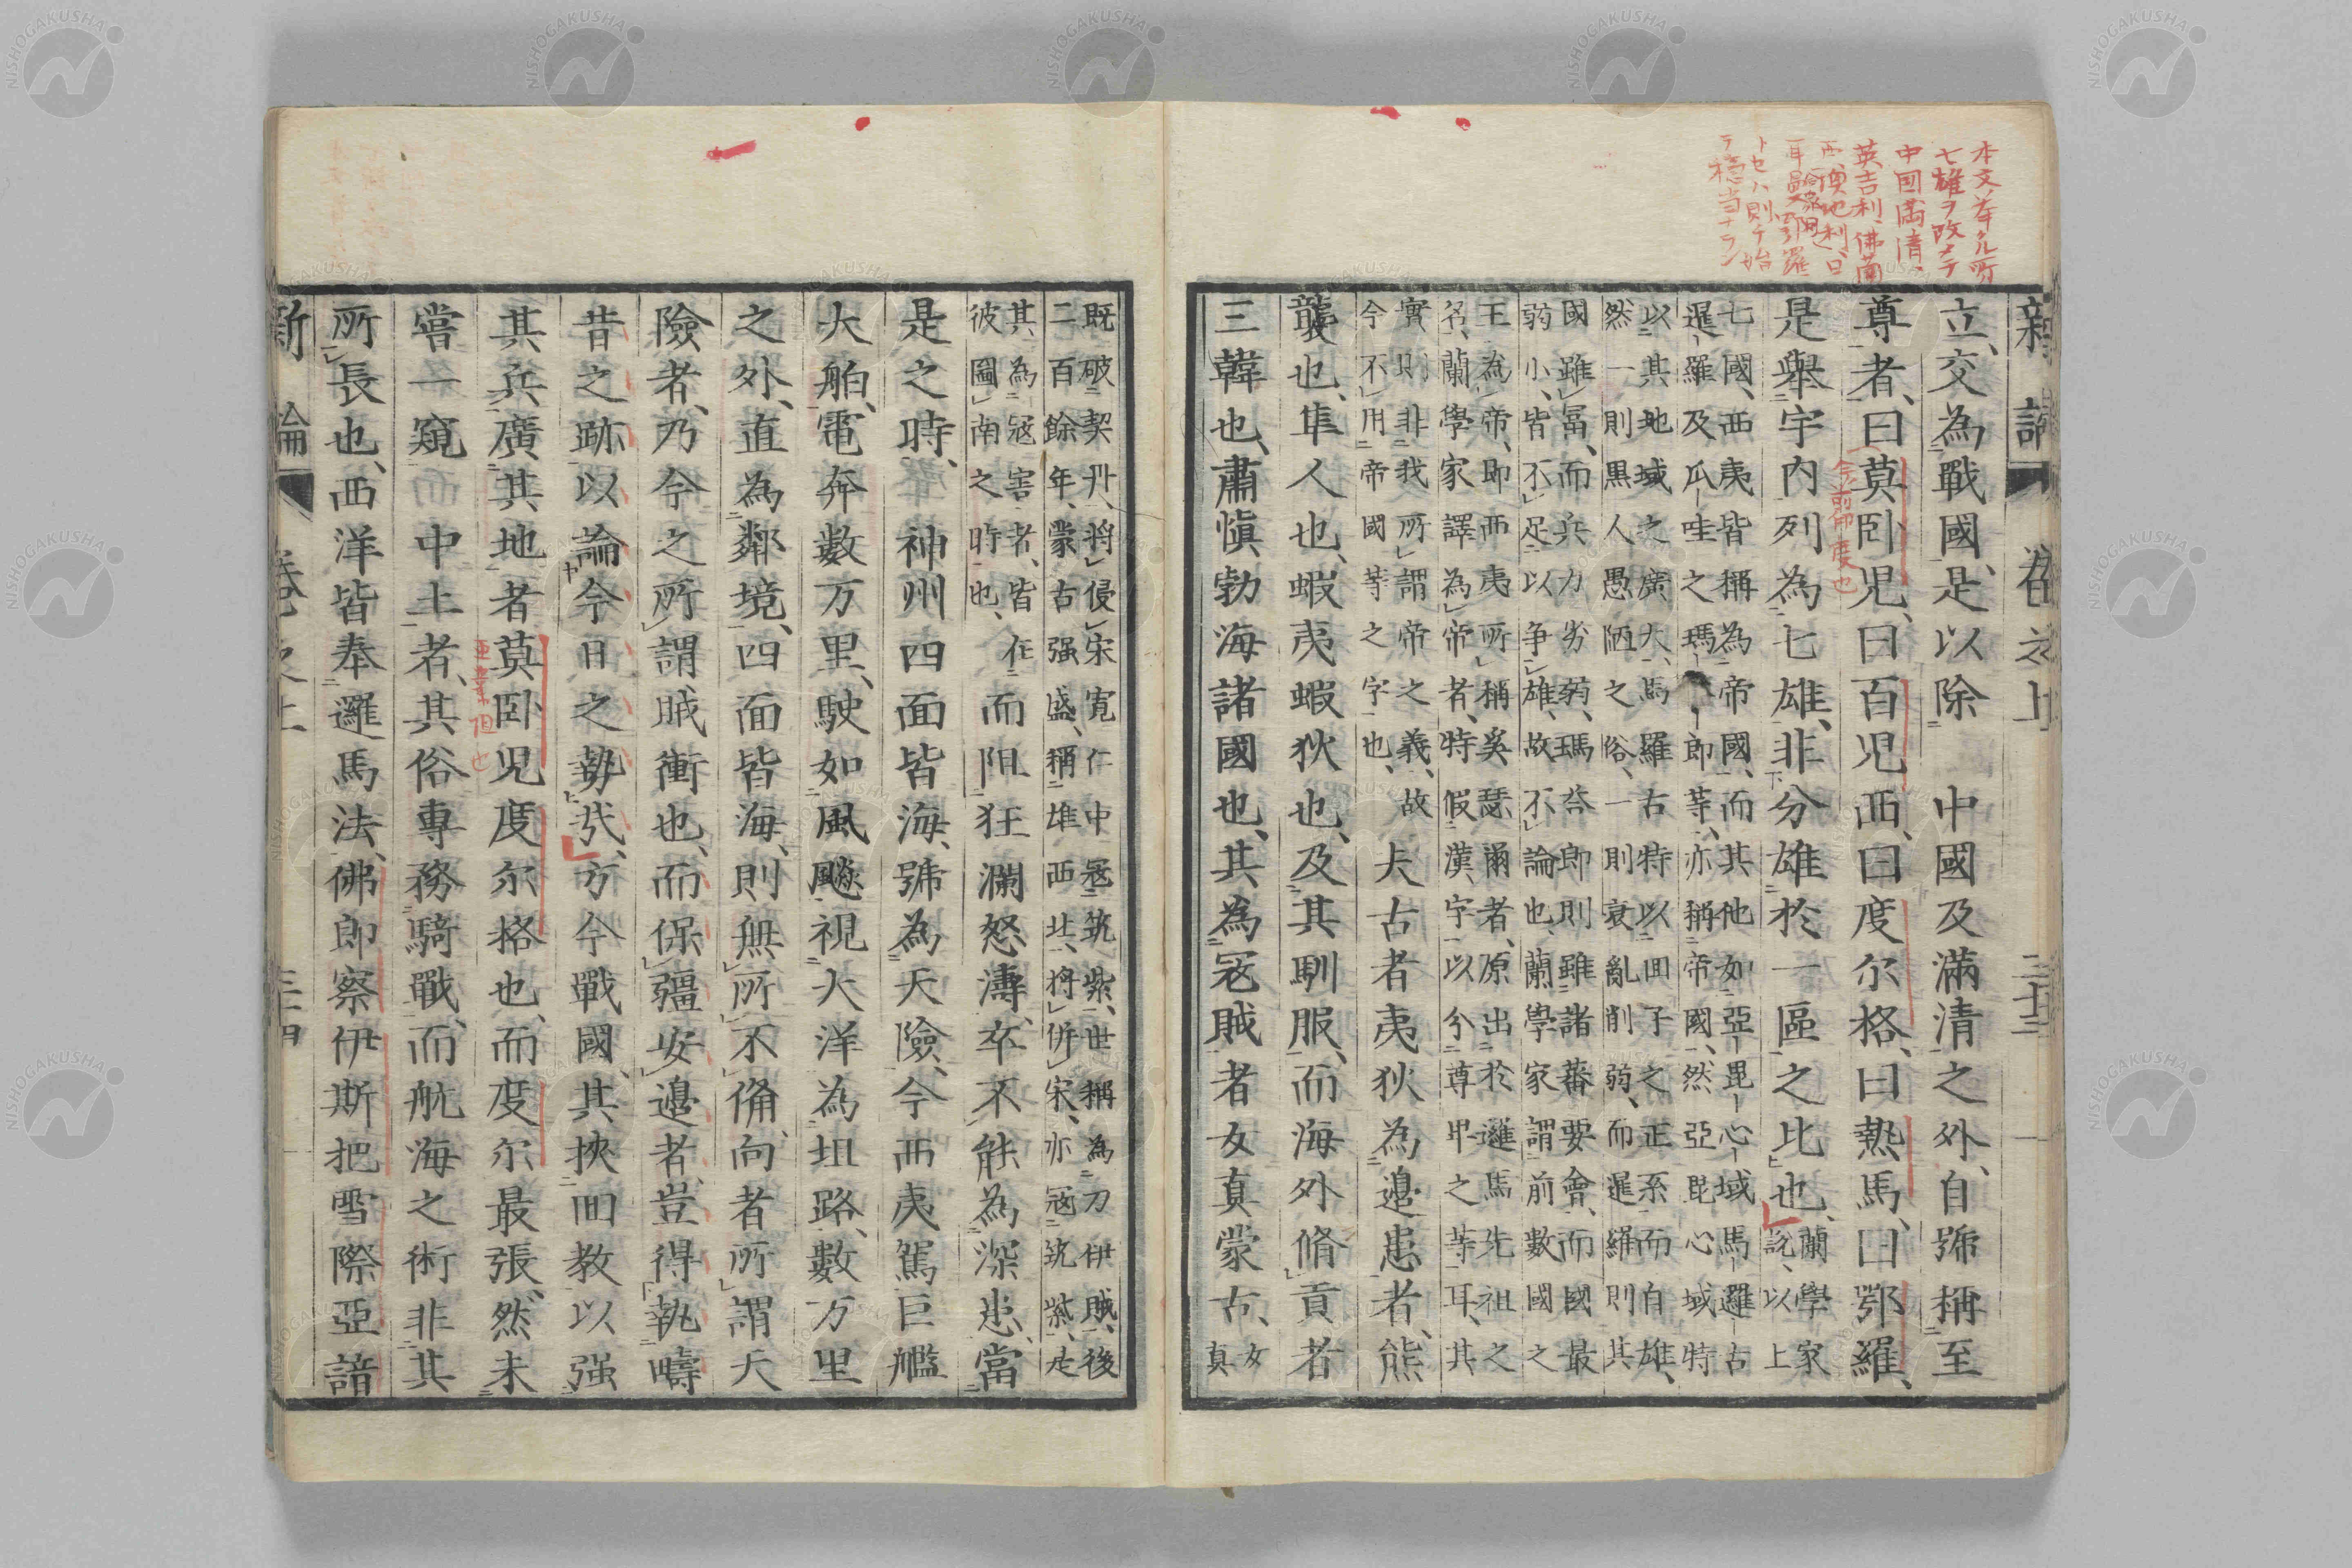 本文ノ挙クル所
七雄ヲ改メテ
中国満清、
英吉利、佛蘭
西、澳地利、日
耳曼、鄂羅
トセハ則チ始
テ穏当ナラン
新論 卷之上 三十三
立、交為戰國、是以除 中國及滿清之外、自號稱至
尊者、曰莫卧児、曰百児西、曰度尓格、曰熱馬、曰鄂羅、
今ノ前印度也
是舉宇内列為七雄、非分雄於一區之比也、
蘭學家
說、以上
七國、西夷皆稱為帝國、而其他如亞毘心域馬邏古
暹羅及瓜哇之瑪郎等、亦稱帝國、然亞毘心域特
以其地域之廣大、馬羅古特以回子之正系而自雄、
然一則黒人愚陋之俗、一則衰亂削弱、而暹羅則其
國雖富、而兵力劣弱、瑪荅郎則雖諸蕃要會、而國最
弱小、皆不足以争雄、故不論也、蘭學家謂前數國之
王為帝、即西夷所稱奚瑟爾者、原出於邏馬先祖之
名、蘭學家譯為帝者、特假漢字以分尊甲之等耳、其
實則非我所謂帝之義、故
今不用帝國等之字也、
夫古者夷狄為邉患者、熊
襲也、隼人也、蝦夷蝦狄也、及其馴服、而海外脩貢者
三韓也、肅愼勃海諸國也、其為寇賊者女真蒙古、
女
真
既破契丹、將侵宋寛仁中寇筑紫、世稱為刀伊賊、後
二百餘年、蒙古强盛、稱雄西北、將併宋、亦寇筑紫、是
其為寇害者、皆在
彼圖南之時也、
而阻狂瀾怒濤、卒不能為深患、當
是之時、神州四面皆海、號為天險、今西夷駕巨艦
大舶、電奔數万里、駛如風飈、視大洋為坦路、數万里
之外、直為鄰境、四面皆海、則無所不備、向者所謂天
險者、乃今之所謂賊衝也、而保疆安邉者、豈得執疇
昔之跡以論今日之勢哉、方今戰國、其挾回教以强
其兵、廣其地者莫卧児度尓格也、而度尓最張、然未
嘗一窺 中土者、其俗專務騎戰、而航海之術非其
所長也、西洋皆奉邏馬法、佛郎察伊斯把雪際亞諳
新論 卷之上 三十四